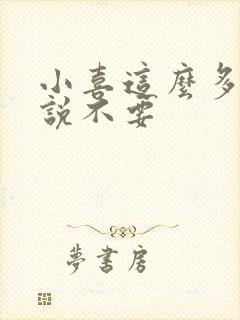 小喜這麼多
說不要
夢書房